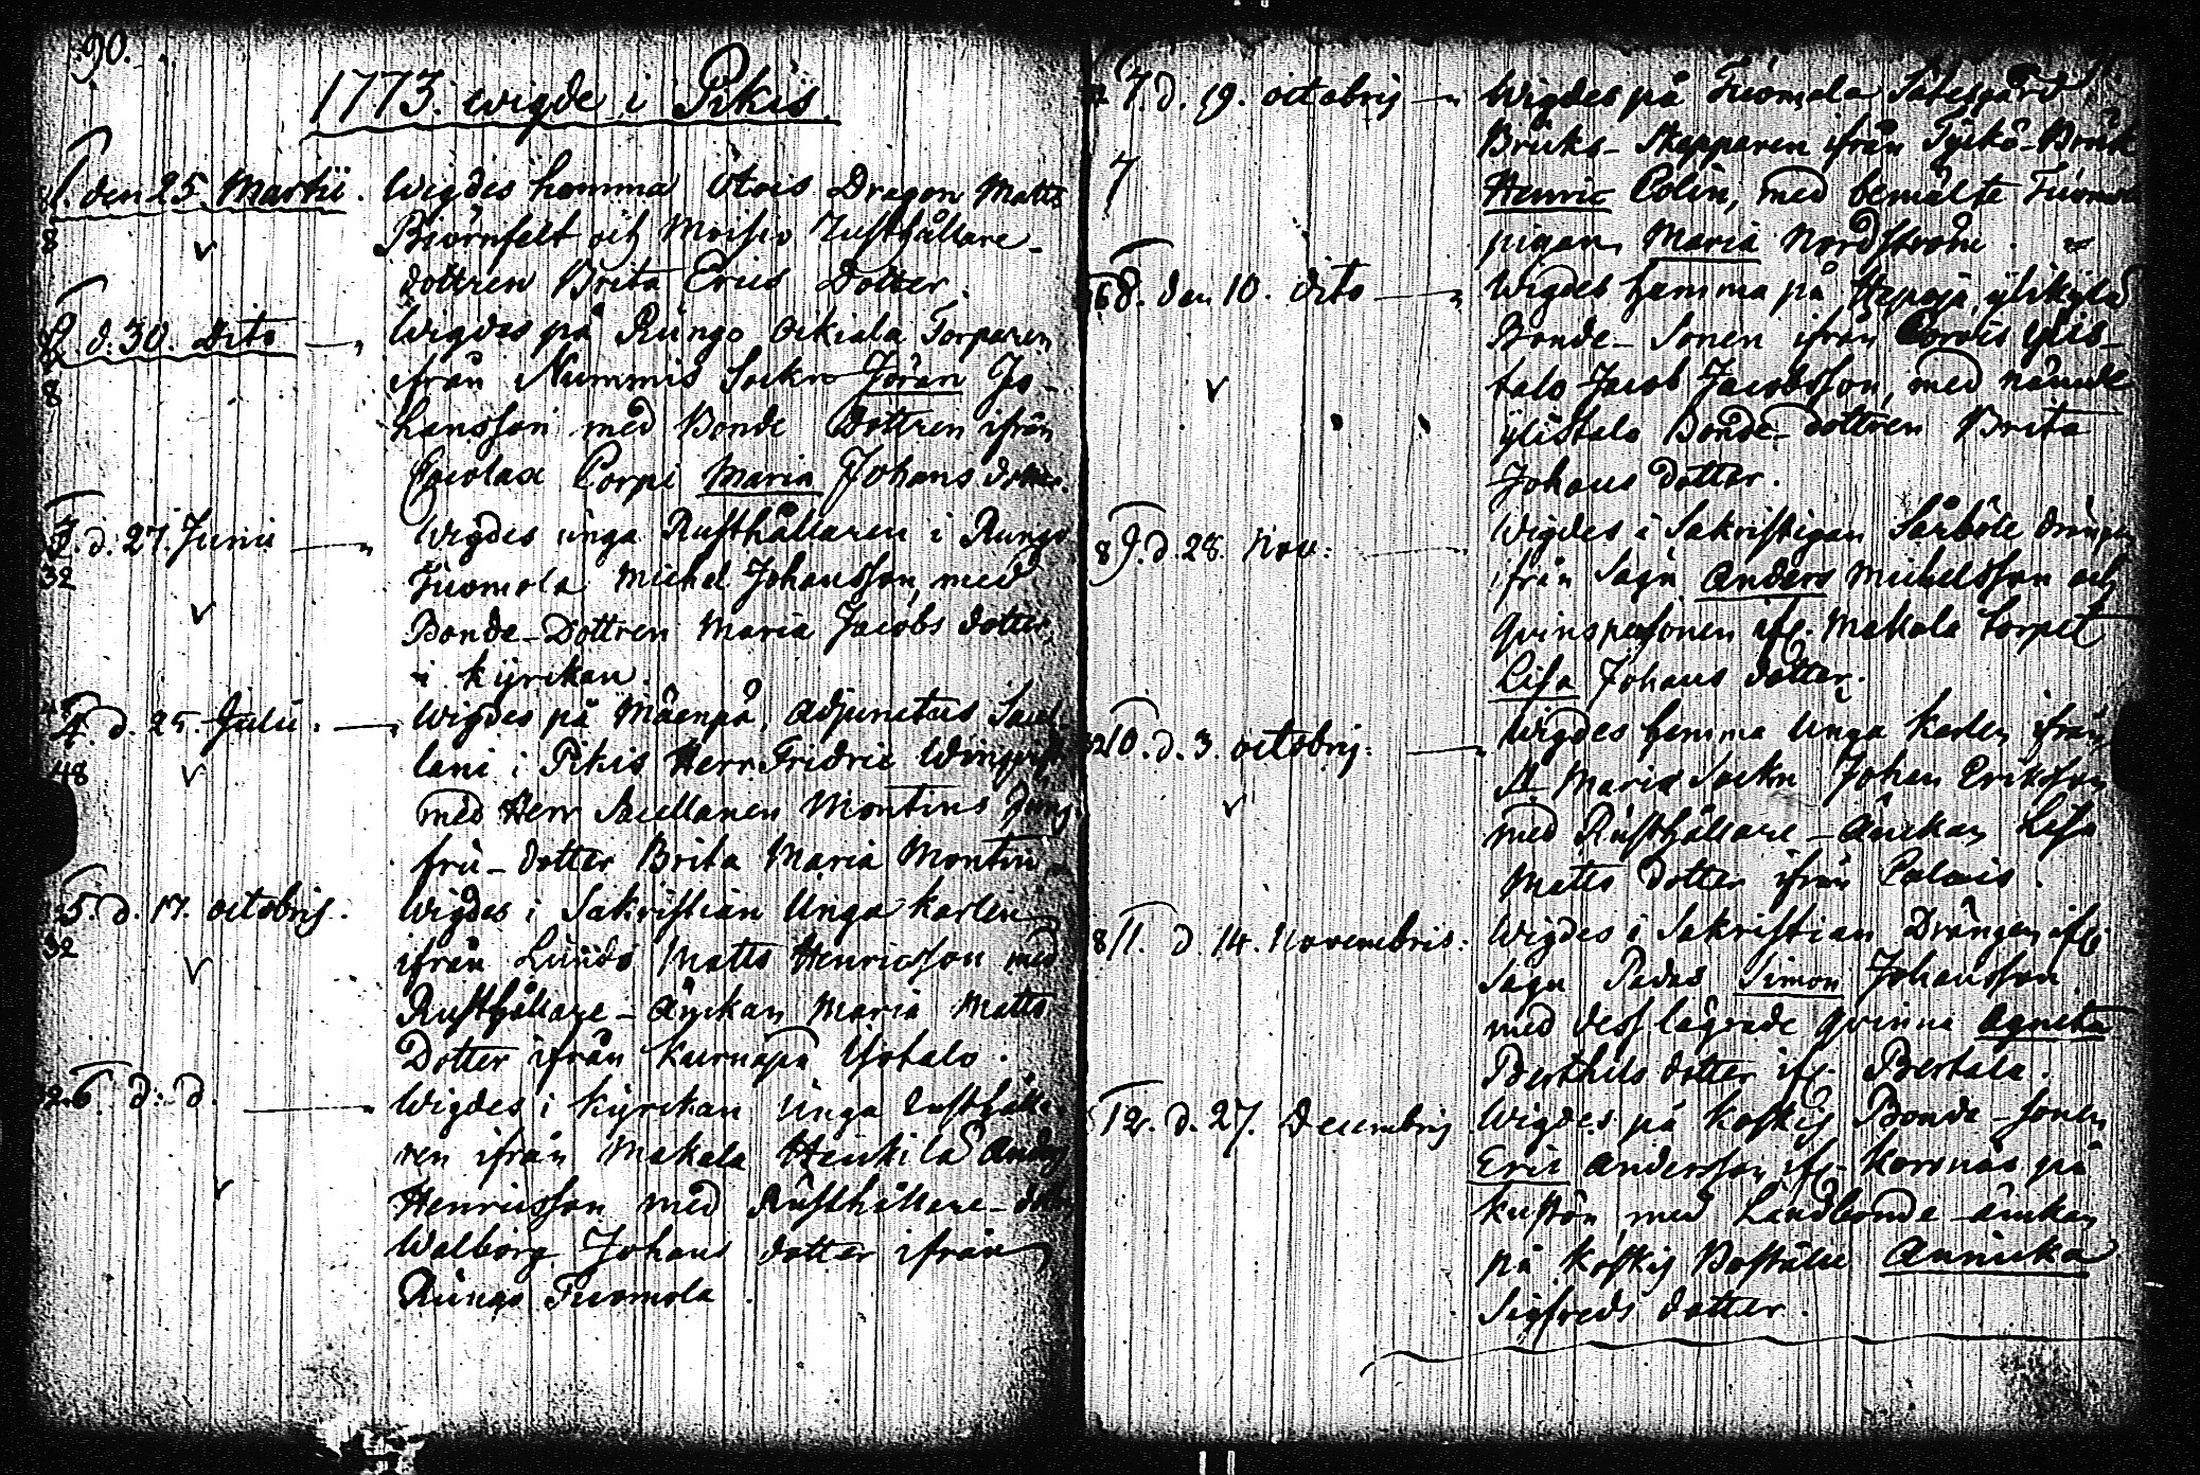 90.
1773. wigde i Pikis
1. den 25. Martii. Wigdes hemma Otois Dragon Matts
8 Biörnfelt och Moisio Rusthållare-
dottren Brita Erics Dotter.
2. d. 30. dito Wigdes på Rungo Torparen
8 ifrån Nummis Sockn Jöran Jo-
hansson med Bonde Dottren ifrån
Corpi Maria Johans dotter.
3. d. 27. Junii Wigdes unga Rusthållaren i Rungo
32 Tuomola Michel Johansson, med
Bonde-Dottren Maria Jacobs dotter,
i kÿrckan.
4. d. 25. Julii. Wigdes på Måenpä, Adjunctus Sacel-
48 lani i Pikis Herr Fridric
med Herr Sacellanen Montins Jung-
fru-dotter Brita Maria Montin
5. d. 17. octobris. Wigdes i Sakristian Unga karlen
32 ifrån Lundo Matts Henricsson med
Rusthållare-Änckan Maria Matts
Dotter ifrån Kurnapä Isotalo.
6. d: d. Wigdes i kÿrckan unga rusthålla-
ren ifrån Makala Heickilä Anders
Henricsson med Rusthållare-dotter
Walborg Johans dotter ifrån
Rungo Tuomola
7. d. 19. octobris Wigdes på Tuomola Sätesgård
7 Bruks- ifrån Tÿkö-Bruk
Henric Colin, med bemälte Tuomola
pigan Maria Nordström.
8. den 10. dito Wigdes hemma på Hepojä ÿlikÿlä
Bonde-Sonen ifrån Corvis ÿlis-
talo Jacob Jacobsson, med nämde
ÿlistalo Bonde-dottren Brita
Johans dotter.
8 9. d. 28. Nov: Wigdes i Sakristigan Särböle drängen
ifrån Sagu Anders Michelsson och
qvinspersonen ifr. Makala torpet
Lisa Johans dotter.
10. d. 3. octobris: Wigdes hemma Unga Karlen ifrån
St Mariæ Sockn Johan Ericsson
med Rusthållare-Änckan Lisa
Matts dotter ifrån
8 11. d. 14. Novembris: Wigdes i Sakristian Drängen ifr:
Sagu Simon Johansson
med dess lägrade qvinna Agneta
Berthils dotter ifr. Bertala.
12. d. 27. Decembris Wigdes på Koskis Bonde-sonen
Eric Andersson ifr. Korsnäs på
Kustön med Landbonde-änckan
på Koskis Boställe Annicka
Sigfreds dotter.